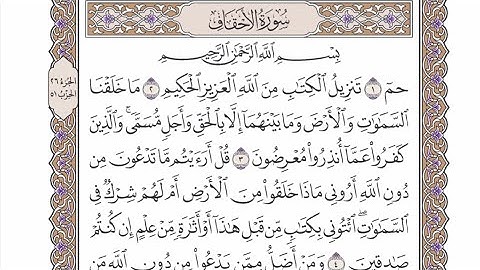 سُورَةُ الأَحْقَافِ
الجُزْءُ ٢٦
الحِزْبُ ٥١
بِسْمِ ٱللَّهِ ٱلرَّحْمَٰنِ ٱلرَّحِيمِ
حمٓ ١ تَنزِيلُ ٱلْكِتَٰبِ مِنَ ٱللَّهِ ٱلْعَزِيزِ ٱلْحَكِيمِ ٢ مَا خَلَقْنَا
ٱلسَّمَٰوَٰتِ وَٱلْأَرْضَ وَمَا بَيْنَهُمَآ إِلَّا بِٱلْحَقِّ وَأَجَلٍ مُّسَمًّى ۚ وَٱلَّذِينَ
كَفَرُوا۟ عَمَّآ أُنذِرُوا۟ مُعْرِضُونَ ٣ قُلْ أَرَءَيْتُم مَّا تَدْعُونَ مِن
دُونِ ٱللَّهِ أَرُونِى مَاذَا خَلَقُوا۟ مِنَ ٱلْأَرْضِ أَمْ لَهُمْ شِرْكٌ فِى
ٱلسَّمَٰوَٰتِ ۖ ٱئْتُونِى بِكِتَٰبٍ مِّن قَبْلِ هَٰذَآ أَوْ أَثَٰرَةٍ مِّنْ عِلْمٍ إِن كُنتُمْ
صَٰدِقِينَ ٤ وَمَنْ أَضَلُّ مِمَّن يَدْعُوا۟ مِن دُونِ ٱللَّهِ مَن